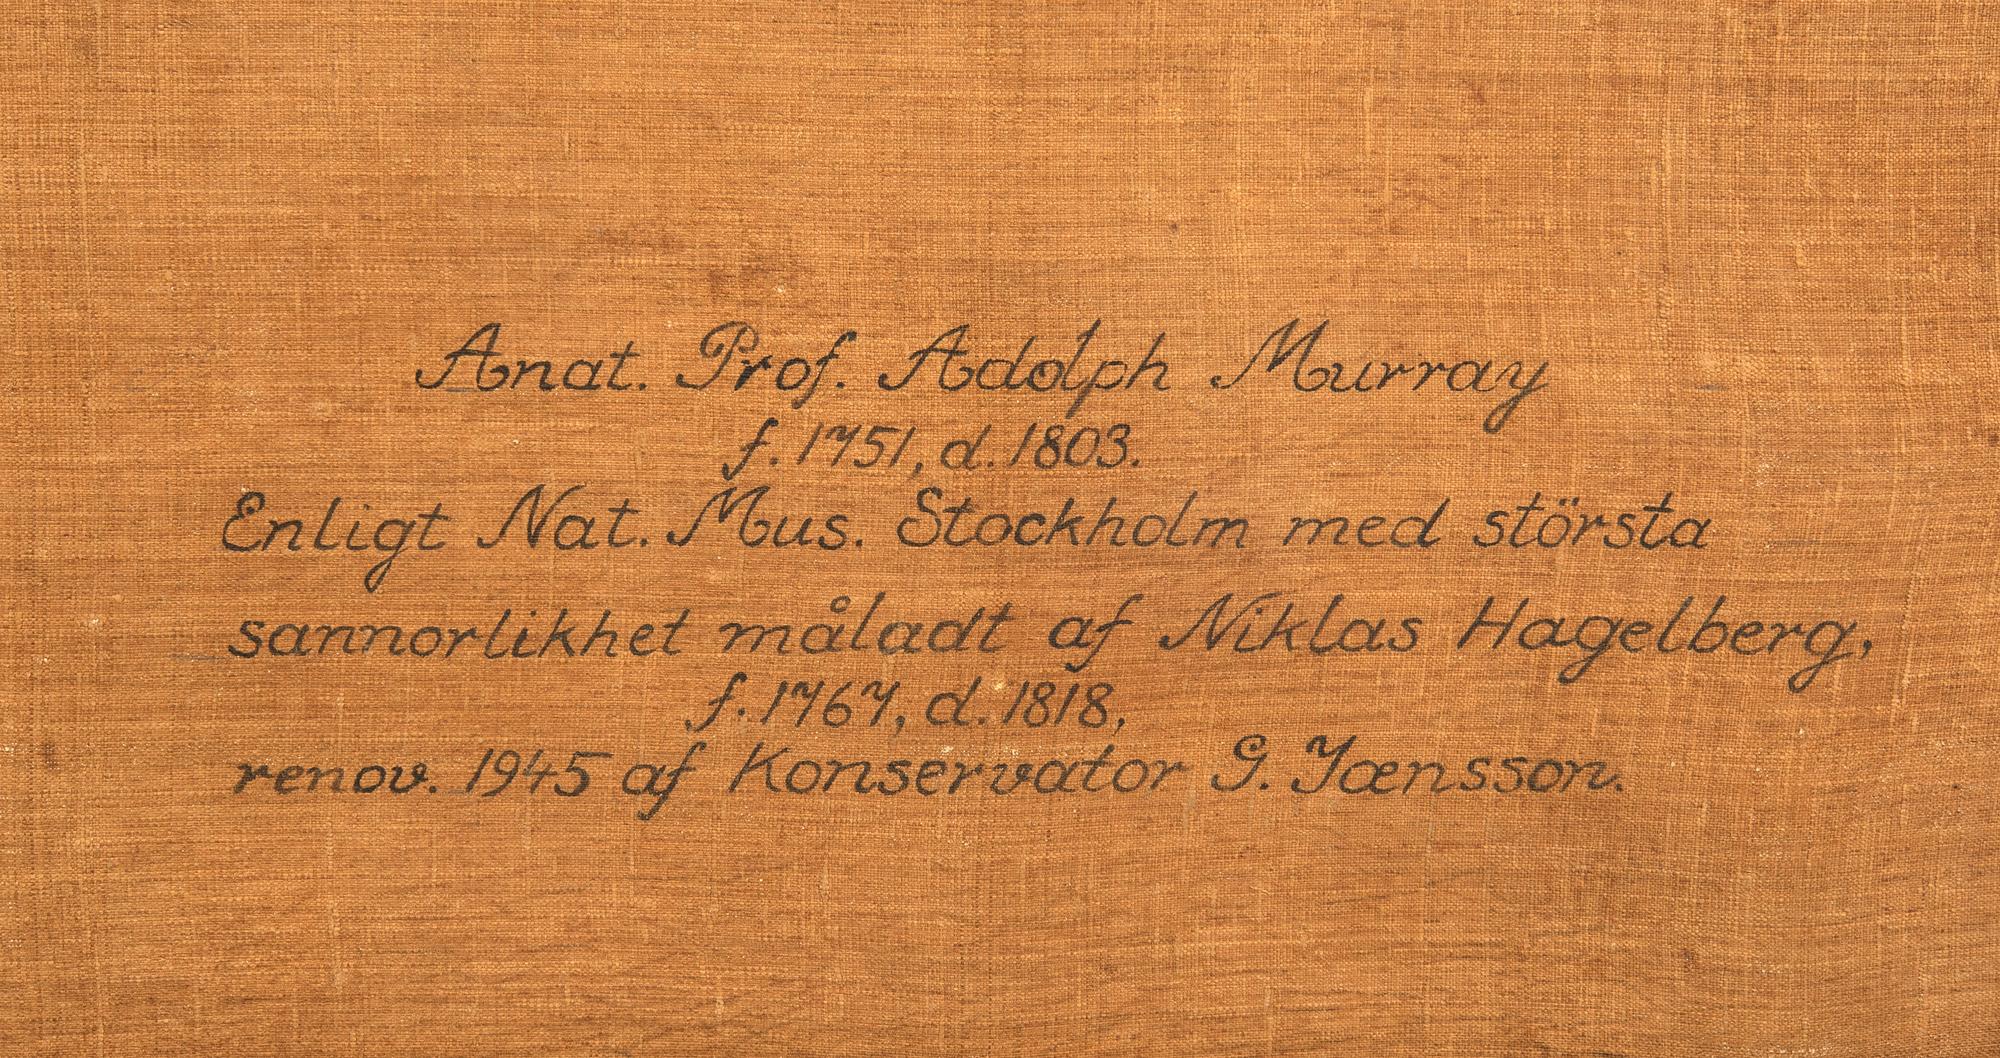 Anat. Prof. Adolph Murray
f. 1751, d. 1803.
Enligt Nat. Mus. Stockholm med största
sannorlikhet måladt af Niklas Hagelberg,
f. 1767, d. 1818,
renov. 1945 af Konservator G. Jœnsson.